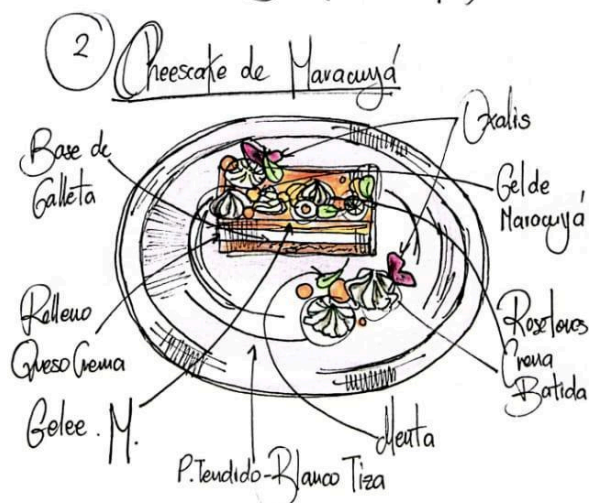 2
Cheescake de Maracuyá
Base de
Galleta
Oxalis
Gel de
Maracuyá
Relleno
Queso Crema
Rosetones
Crema
Batida
Gelee . M.
Menta
P. Tendido - Blanco Tiza